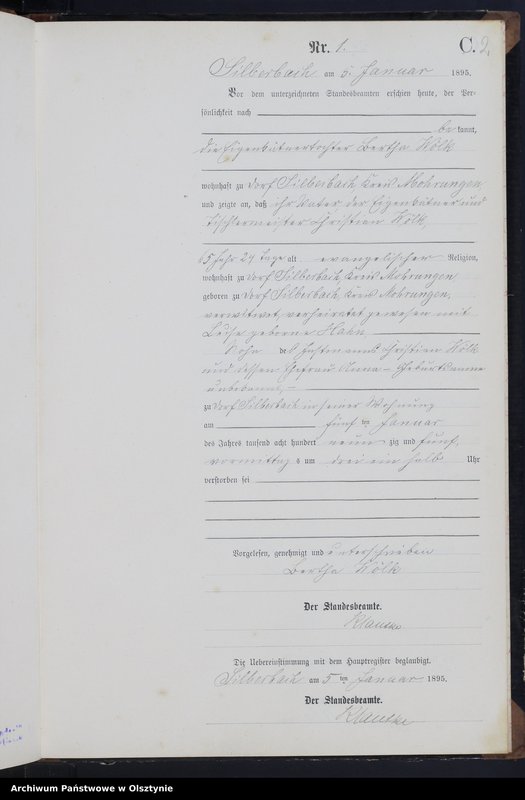 Nr. 1.
C. 2.
Silberbach am 5. Januar 1895.
Vor dem unterzeichneten Standesbeamten erschien heute, der Per-
sönlichkeit nach
be kannt,
die Eigenkätnertochter Bertha Kölk
wohnhaft zu Dorf Silberbach, Kreis Mohrungen,
und zeigte an, daß ihr Vater der Eigenkätner und
Tischlermeister Christian Kölk,
65 Jahr 24 Tage alt, evangelischer Religion,
wohnhaft zu Dorf Silberbach, Kreis Mohrungen
geboren zu Dorf Silberbach, Kreis Mohrungen,
verwitwet, verheiratet gewesen mit
Luise geborne Hahn
Sohn des Christian Kölk
und dessen Ehefrau Anna - Geburtsname
unbekannt, -
zu Dorf Silberbach in seiner Wohnung
am fünf ten Januar
des Jahres tausend acht hundert neun zig und fünf,
vormittags um drei ein halb Uhr
verstorben sei
Vorgelesen, genehmigt und unterschrieben
Bertha Kölk
Der Standesbeamte.
Klautke
Die Uebereinstimmung mit dem Hauptregister beglaubigt.
Silberbach am 5ten Januar 1895.
Der Standesbeamte.
Klautke
Archiwum Państwowe w Olsztynie